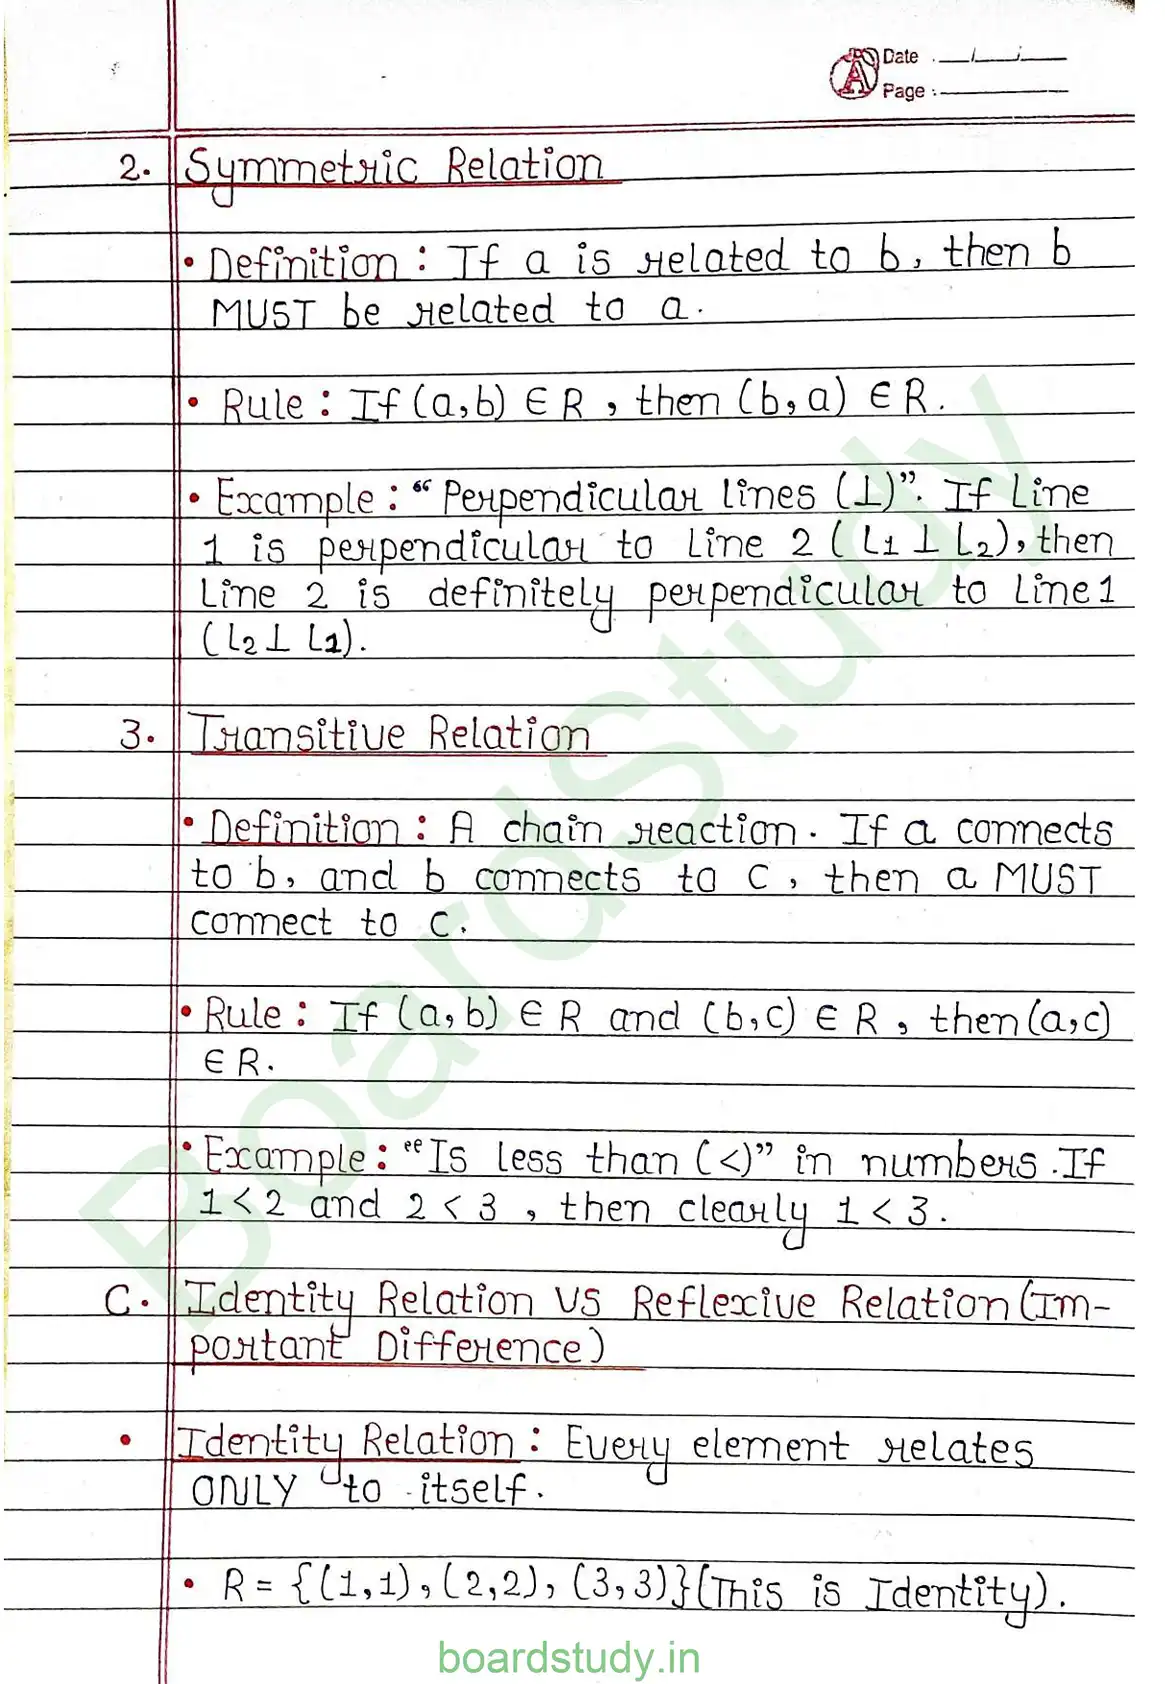 Date . __/__/__
Page : ______
2. Symmetric Relation
• Definition : If a is related to b, then b
MUST be related to a.
• Rule : If (a,b) ∈ R , then (b,a) ∈ R.
• Example : “Perpendicular lines (⊥)”. If Line
1 is perpendicular to Line 2 ( L1 ⊥ L2), then
Line 2 is definitely perpendicular to Line 1
( L2 ⊥ L1).
3. Transitive Relation
• Definition : A chain reaction. If a connects
to b, and b connects to c, then a MUST
connect to c.
• Rule : If (a,b) ∈ R and (b,c) ∈ R , then (a,c)
∈ R.
• Example : “Is less than (<)” in numbers. If
1 < 2 and 2 < 3 , then clearly 1 < 3.
C. Identity Relation VS Reflexive Relation (Im-
portant Difference)
• Identity Relation : Every element relates
ONLY to itself.
• R = {(1,1), (2,2), (3,3)} (This is Identity).
BoardStudy
boardstudy.in